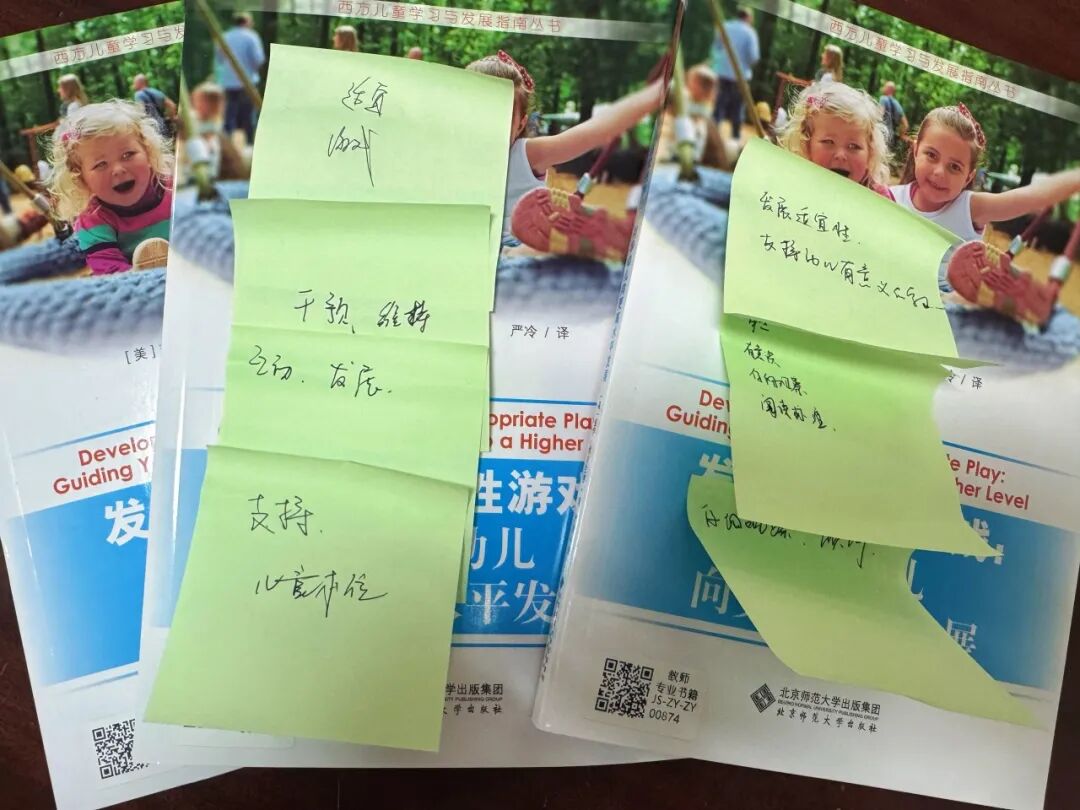 西方儿童学习与发
[美]
Develop
Guiding Y
发
西方儿童学习与发展指南丛书
适宜
游戏
干预、维持
互动、发展.
支持.
儿童本位
严冷 / 译
opriate Pla
o a Higher
性游戏
幼儿
水平发
学出版集团
大学出版社
西方儿童学习与发展指南丛书
发展适宜性.
支持幼儿有意义
阅读
/ 译
De
Guiding
te Play:
her Level
发
戏:
向
儿
展
教师
专业书籍
JS-ZY-ZY
00874
北京师范大学出版集团
BEIJING NORMAL UNIVERSITY PUBLISHING GROUP
北京师范大学出版社